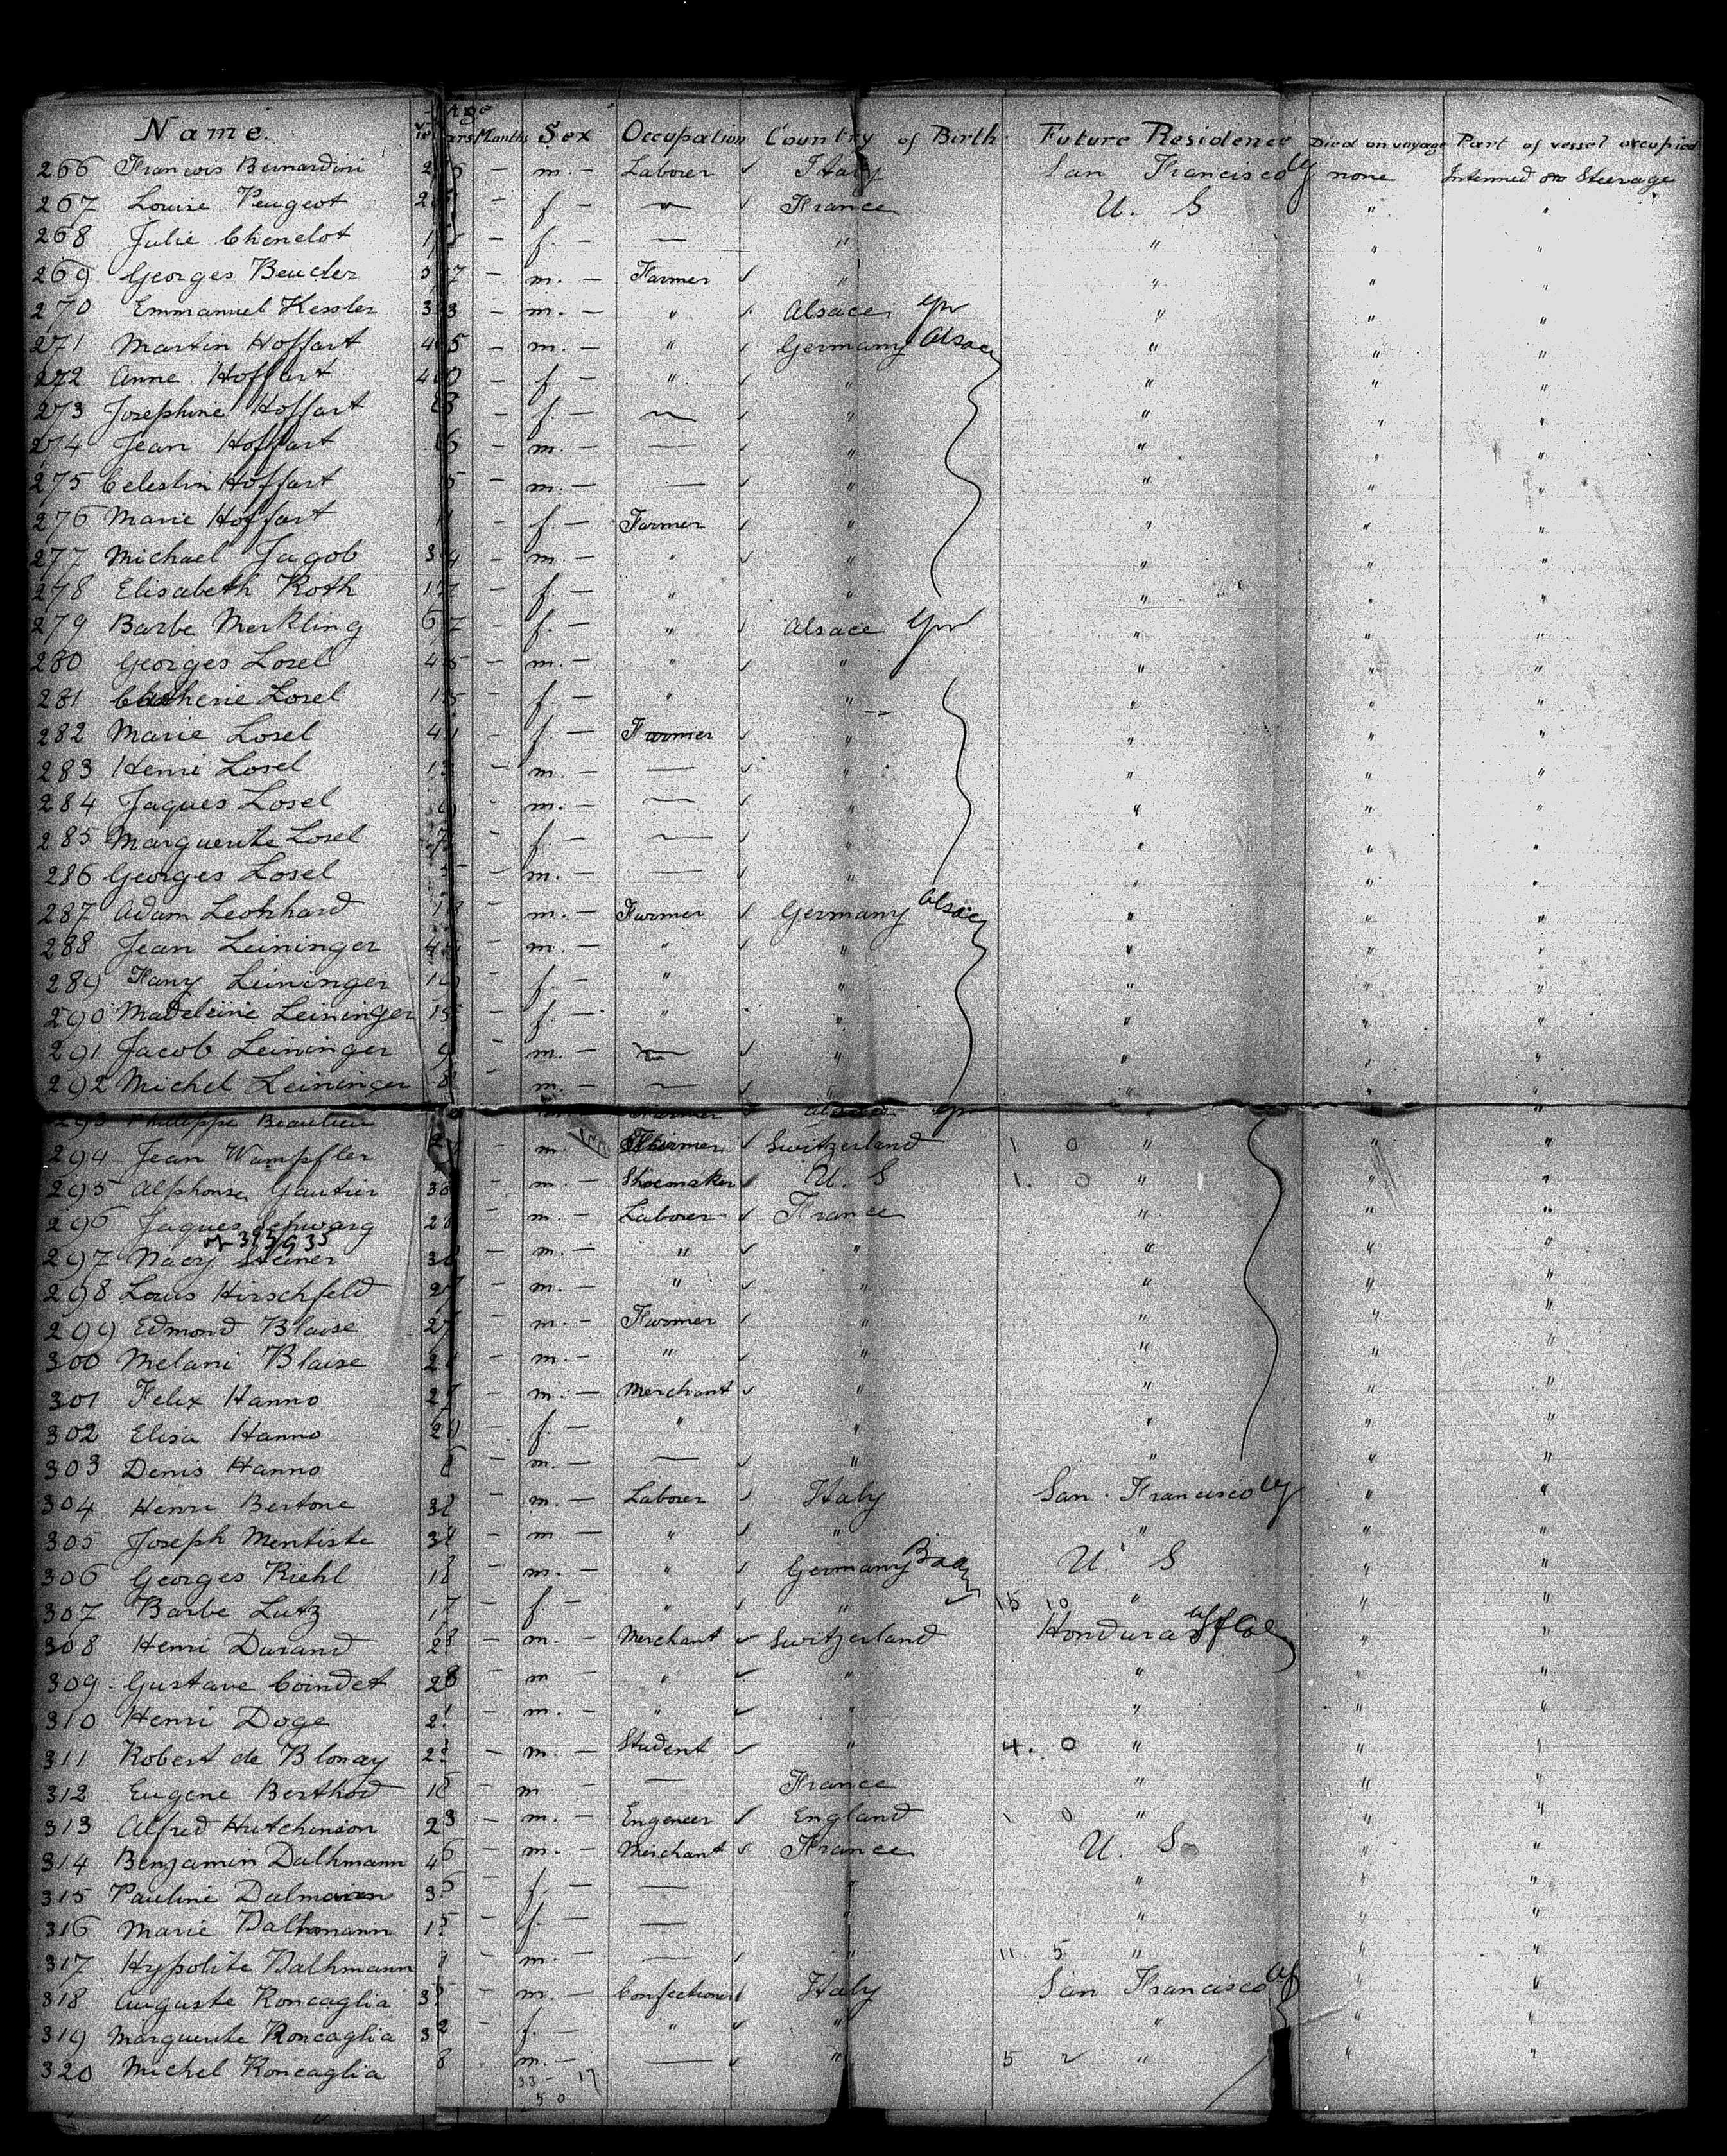 Name. Age Years Months Sex Occupation Country of Birth Future Residence Died on voyage Part of vessel occupied
266 Francois Bernardini — m. — Laborer ✓ Italy San Francisco none Steerage
267 Louise Peugeot — f — ✓ France U. S " "
268 Julie Chenelot — f. — — " " " "
269 Georges Beucler 37 — m. — Farmer ✓ " " " "
270 Emmanuel Kessler 33 — m. — " ✓ Alsace " " "
271 Martin Hoffart 45 — m. — " ✓ Germany Alsace " " "
272 Anne Hoffart 40 — f — " ✓ " " " "
273 Josephine Hoffart — f. — — ✓ " " " "
274 Jean Hoffart — m. — — ✓ " " " "
275 Celestin Hoffart 5 — m. — — ✓ " " " "
276 Marie Hoffart — f. — Farmer ✓ " " " "
277 Michael Jagob 34 — m. — " ✓ " " " "
278 Elisabeth Roth 17 — f — " " " " "
279 Barbe Merkling 67 — f. — " ✓ Alsace " " "
280 Georges Losel 45 — m. — " ✓ " " " "
281 Losel 15 — f. — " " " " "
282 Marie Losel 41 — f. — Farmer ✓ " " " "
283 Henri Losel — m. — — ✓ " " " "
284 Jaques Losel — m. — — ✓ " " " "
285 Marguerite Losel 7 — f. — — ✓ " " " "
286 Georges Losel — m. — — ✓ " " " "
287 Adam Leonhard 18 — m. — Farmer ✓ Germany Alsace " " "
288 Jean Leininger — m. — " ✓ " " " "
289 Fany Leininger — f. — " " " " "
290 Madeleine Leininger 15 — f. — " ✓ " " " "
291 Jacob Leininger 9 — m. — — ✓ " " " "
292 Michel Leininger 8 — m. — — ✓ " " " "
293 Philippe Beaulieu Farmer Alsace " "
294 Jean Wampfler m. Farmer ✓ Switzerland 1 0 " " "
295 Alphonse Gautier 38 — m. — Shoemaker U. S 1. 0 " " "
296 Jaques Schwarg 28 — m. — Laborer ✓ France " " "
297 Nacy Steiner — m. — " ✓ " " " "
298 Louis Hirschfeld 27 — m. — " ✓ " " " "
299 Edmond Blaise 27 — m. — Farmer ✓ " " " "
300 Melani Blaise — m. — " ✓ " " " "
301 Felix Hanno 27 — m. — Merchant ✓ " " " "
302 Elisa Hanno — f. — " " " " "
303 Denis Hanno — m. — — ✓ " " " "
304 Henri Bertone — m. — Laborer ✓ Italy San Francisco " "
305 Joseph Mentiste — m — " ✓ " " " "
306 Georges Riehl — m. — " ✓ Germany U. S " "
307 Barbe Lutz 17 — f — " ✓ " 15 10 " " "
308 Henri Durand 28 — m. — Merchant ✓ Switzerland Honduras " "
309 Gustave Coindet 28 — m — " ✓ " " " "
310 Henri Doge — m. — " ✓ " " " "
311 Robert de Blonay — m. — Student ✓ " 4. 0 " " "
312 Eugene Berthod — m — — France " " "
313 Alfred Hutchinson 23 — m. — Engeneer ✓ England 1 0 " " "
314 Benjamin Dalhmann 46 — m. — Merchant ✓ France U. S " "
315 Pauline Dalmann — f. — — " " " "
316 Marie Dalhmann — f. — — " " " "
317 Hypolite Dalhmann — m. — — ✓ " 11 5 " " "
318 Auguste Roncaglia — m. — Confectioner Italy San Francisco " "
319 Marguerite Roncaglia 32 — f. — " ✓ " " " "
320 Michel Roncaglia 8 m. — — ✓ " 5 2 " " "
33 - 17
50